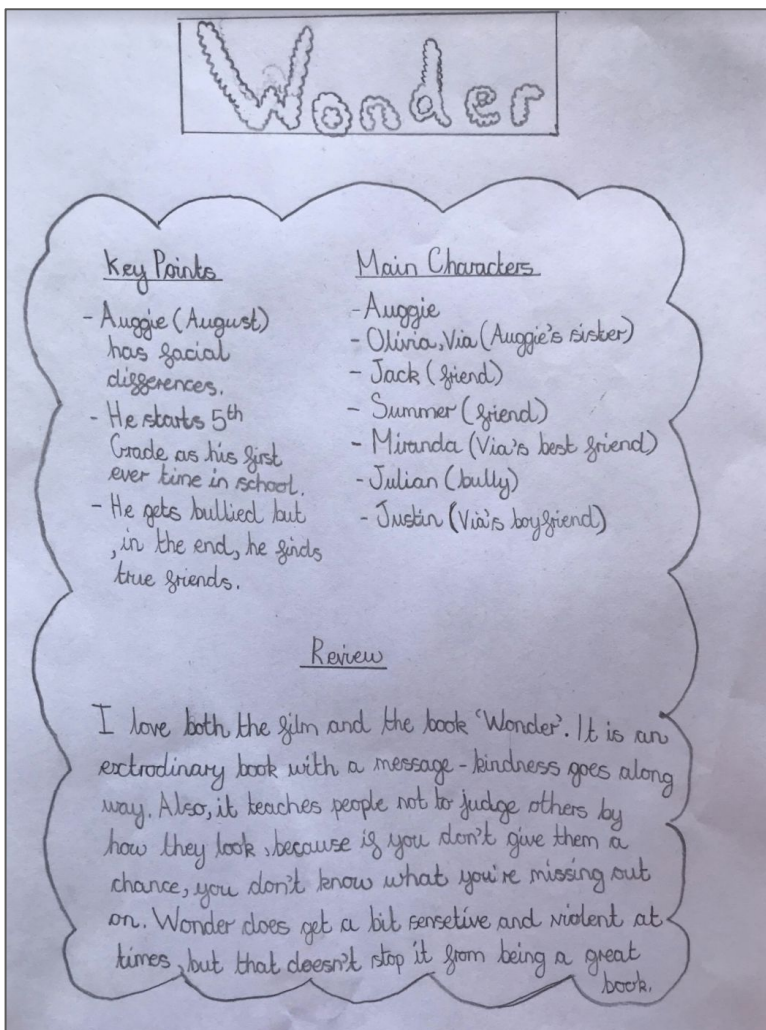 Wonder
Key Points
- Auggie (August)
has facial
differences.
- He starts 5th
Grade as his first
ever time in school.
- He gets bullied but
, in the end, he finds
true friends.
Main Characters
- Auggie
- Olivia, Via (Auggie's sister)
- Jack (friend)
- Summer (friend)
- Miranda (Via's best friend)
- Julian (bully)
- Justin (Via's boyfriend)
Review
I love both the film and the book 'Wonder'. It is an
extrodinary book with a message - kindness goes along
way. Also, it teaches people not to judge others by
how they look, because if you don't give them a
chance, you don't know what you're missing out
on. Wonder does get a bit sensetive and violent at
times, but that doesn't stop it from being a great
book.